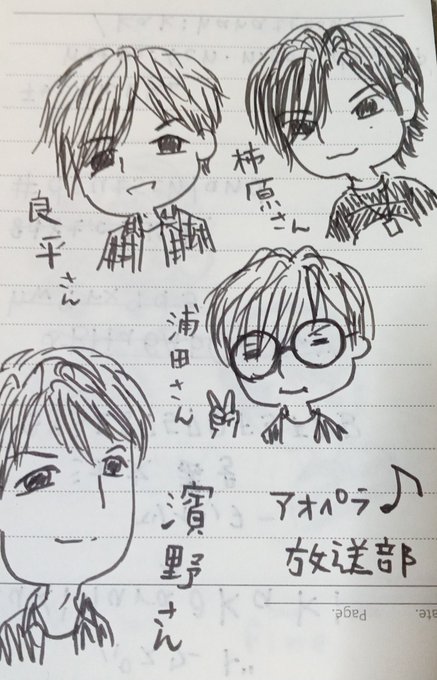 柿原さん
良平さん
浦田さん
アオパラ♪
放送部
濱野さん
Page.